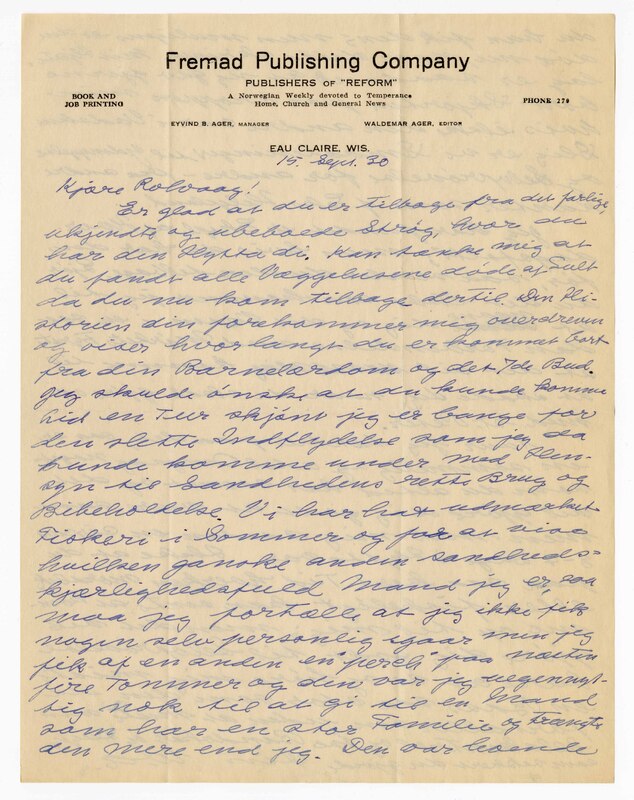 Fremad Publishing Company
PUBLISHERS OF "REFORM"
BOOK AND
JOB PRINTING
A Norwegian Weekly devoted to Temperance
Home, Church and General News
PHONE 270
EYVIND B. AGER, MANAGER
WALDEMAR AGER, EDITOR
EAU CLAIRE, WIS.
15. Sept. 30
Kjære Rolvaag!
Er glad at du er tilbage fra det farlige,
ukjendte og ubeboede Strøg hvor du
har den Hytta di. Kan tænke mig at
du fandt alle Væggelusene døde af Sult
da du nu kom tilbage dertil. Den Hi-
storien din forekommer mig overdreven
og viser hvor langt du er kommet bort
fra din Barnelærdom og det 7de Bud.
Jeg skulde ønske at du kunde komme
hid en Tur skjønt jeg er bange for
den slette Indflydelse som jeg da
kunde komme under med Hen-
syn til Sandhedens rette Brug og
Bibeholdelse. Vi har hat udmærket
Fiskeri i Sommer og for at vise
hvilken ganske anden sandheds-
kjærlighedsfuld Mand jeg er, saa
maa jeg fortælle at jeg ikke fik
nogen selv personlig igaar men jeg
fik af en anden en "perch" paa næsten
fire Tommer og den var jeg uegennyt-
tig nok til at gi til en Mand
som har en stor Familie og trængte
den mere end jeg. Den var levende